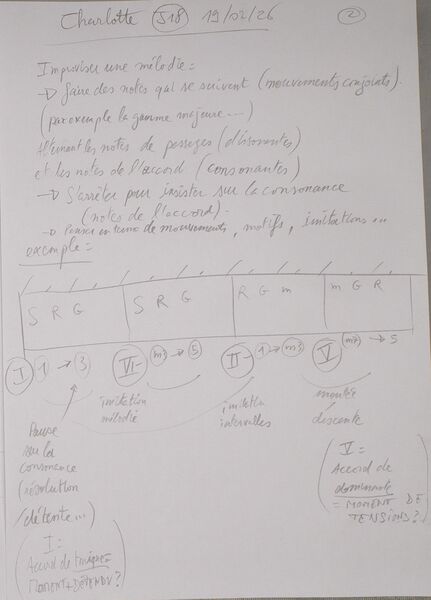 Charlotte J18 19/02/26 2
Improviser une mélodie :
→ faire des notes qui se suivent (mouvements conjoints).
(par exemple la gamme majeure...)
Alternant les notes de passages (dissonantes)
et les notes de l'accord (consonantes)
→ S'arrêter pour insister sur la consonance
(notes de l'accord).
→ Penser en terme de mouvements, motifs, imitations...
exemple :
S R G S R G R G m m G R
I 1 → 3 VI- m3 → 5 II- 1 → m3 V m7 → 5
imitation mélodie
imitation intervalles
montée descente
Pause
sur la
consonance
(résolution
/détente...)
(I =
Accord de tonique =
MOMENT DÉTENDU ?)
(V =
Accord de
dominante
= MOMENT DE
TENSIONS ?)